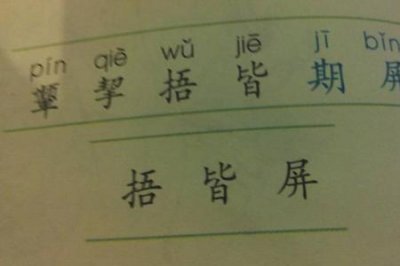 pín qiē wǔ jiē jī bǐn
挈 捂 皆 期 屏
捂 皆 屏